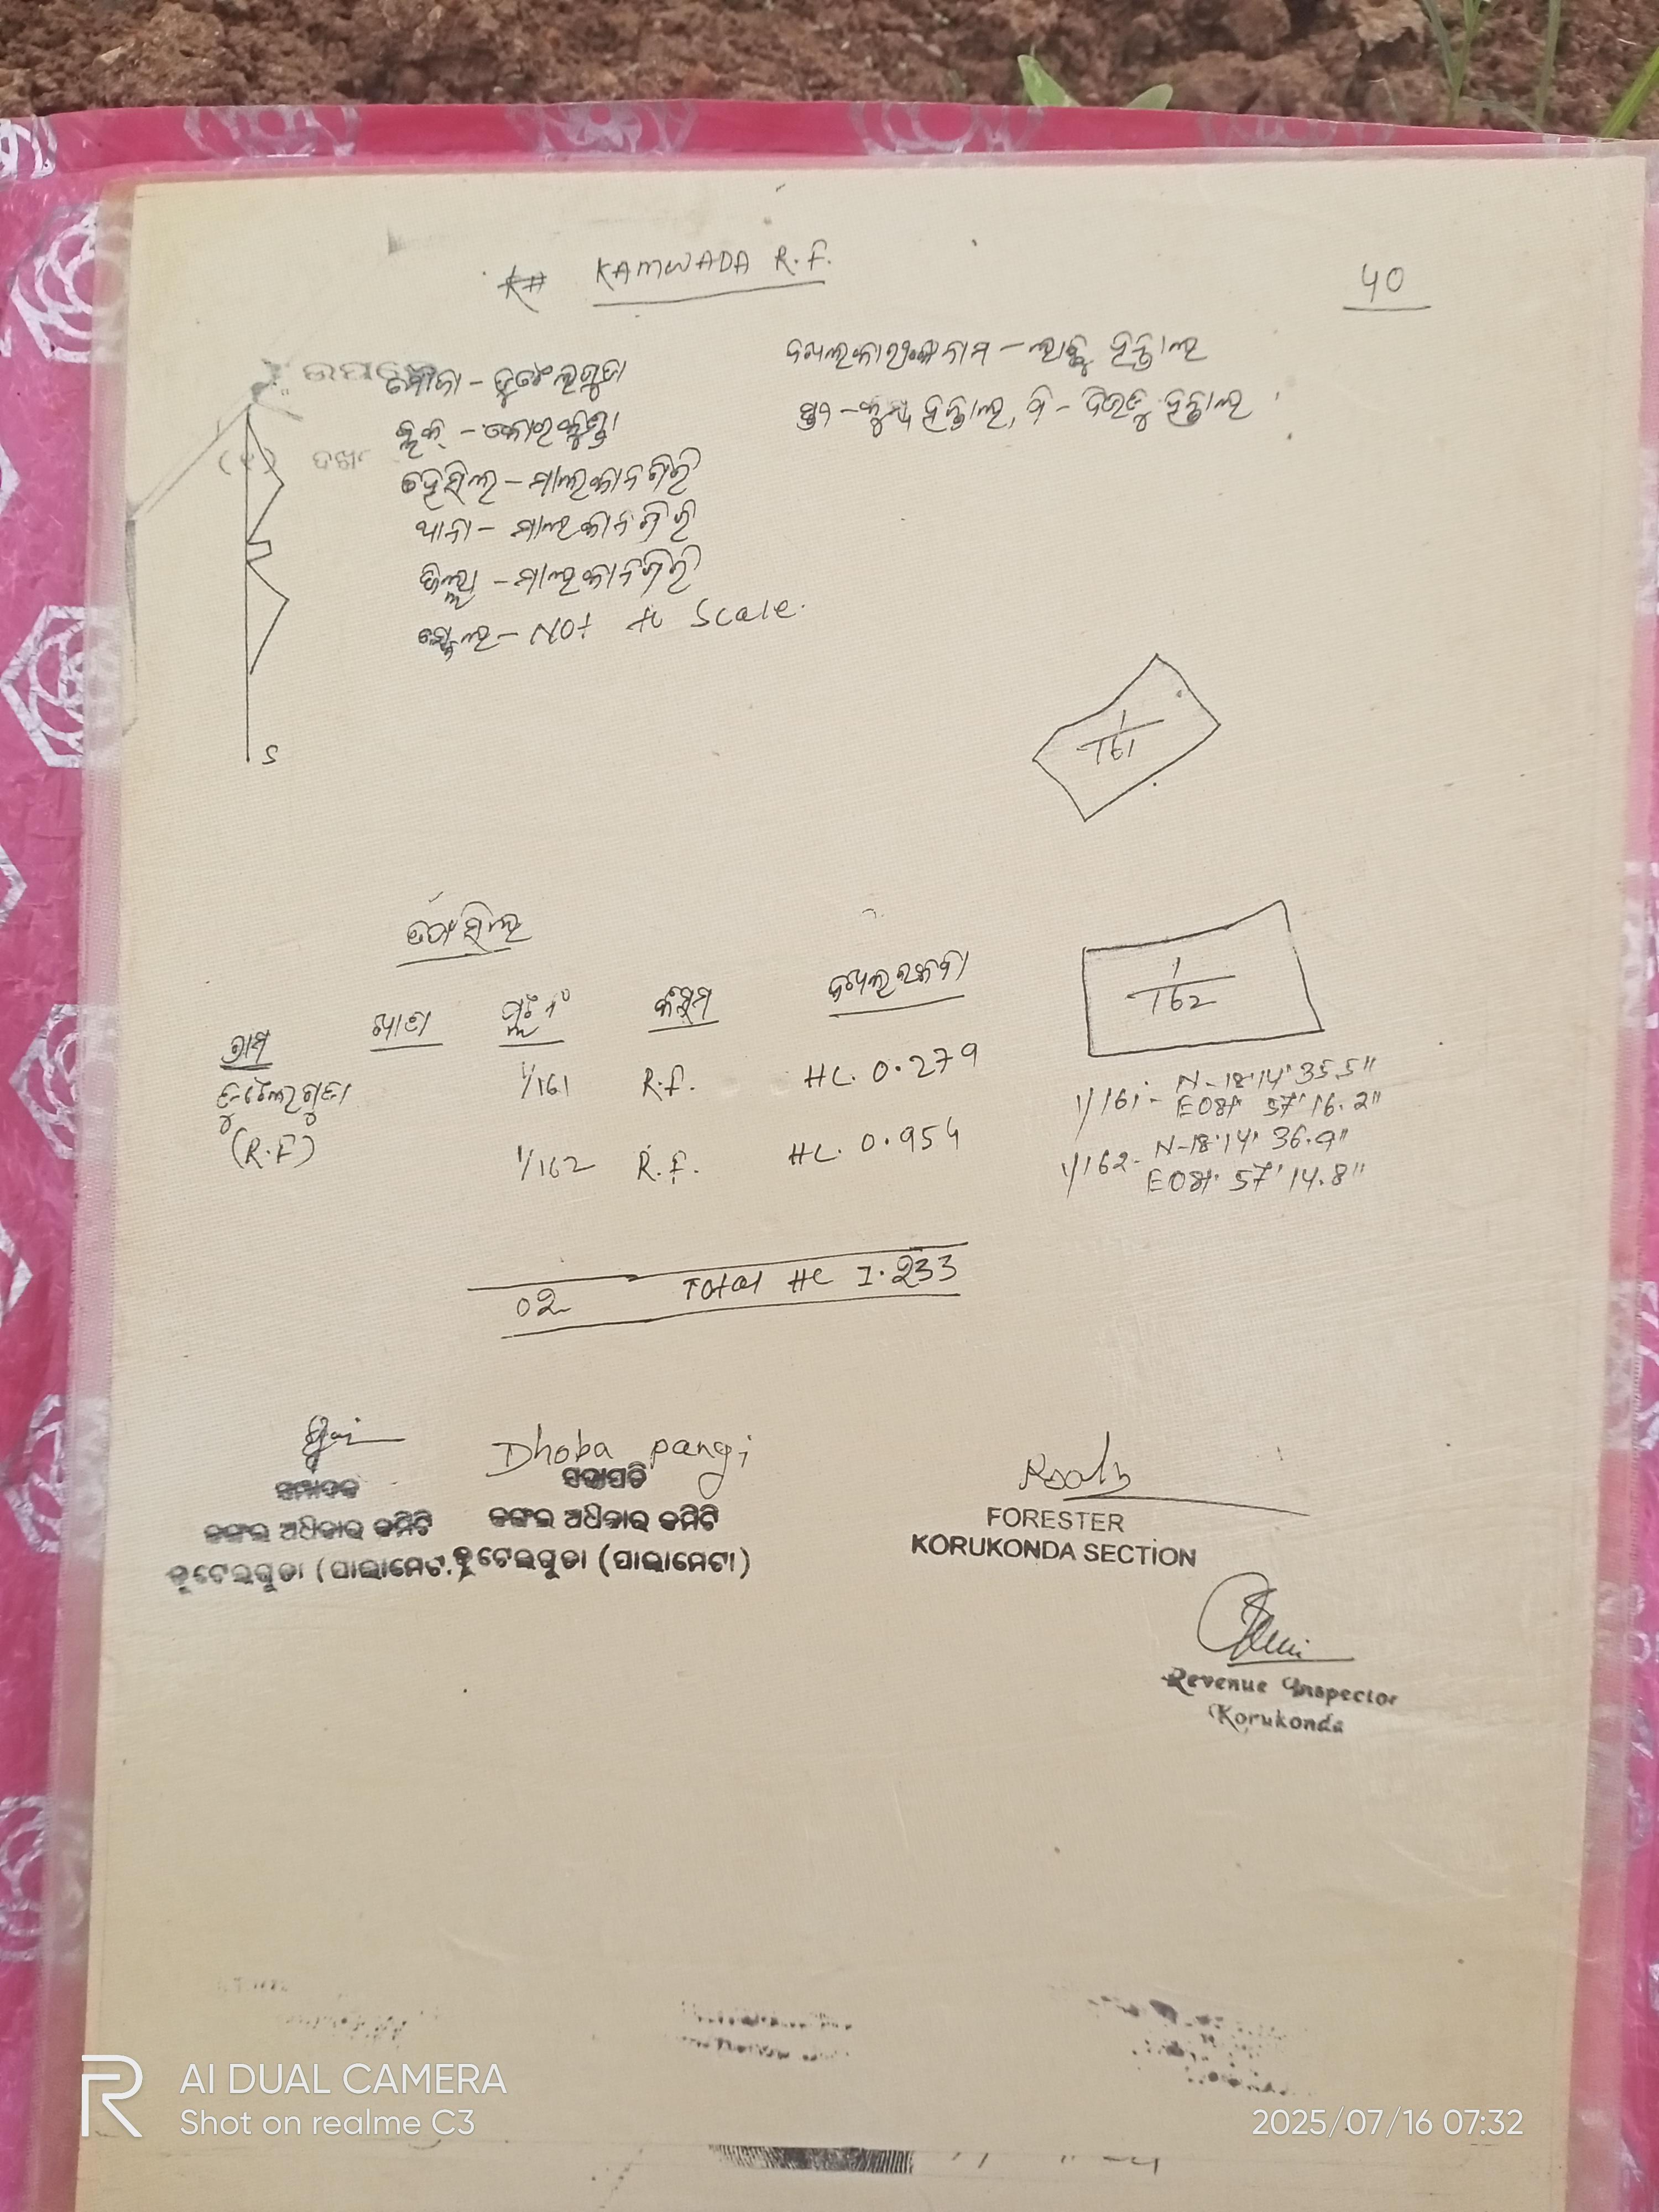 KAMWADA R.F.
40
ମୌଜା -
ଦଖଲକାରୀଙ୍କ ନାମ -
ବ୍ଲକ୍ - କୋରକୁଣ୍ଡା
ତହସିଲ - ମାଲକାନଗିରି
ଥାନା - ମାଲକାନଗିରି
ଜିଲ୍ଲା - ମାଲକାନଗିରି
ସ୍କେଲ - Not to Scale.
S
1/161
1/162
ତଫସିଲ
ଗ୍ରାମ ଖାତା ପ୍ଲଟ ନଂ କିସମ ଦଖଲ ରକବା
1/161 R.F. HC. 0.279
(R.F) 1/162 R.F. HC. 0.954
1/161 - N-18°14' 35.5"
E081° 57' 16.2"
1/162 - N-18°14' 36.9"
E081° 57' 14.8"
02 Total HC 1.233
Dhoba pangi
ସମ୍ପାଦକ
ଜଙ୍ଗଲ ଅଧିକାର କମିଟି
କୁଟେଲଗୁଡା (ପାଲାମେଟା)
ସଭାପତି
ଜଙ୍ଗଲ ଅଧିକାର କମିଟି
କୁଟେଲଗୁଡା (ପାଲାମେଟା)
FORESTER
KORUKONDA SECTION
Revenue Inspector
Korukonda
AI DUAL CAMERA
Shot on realme C3
2025/07/16 07:32